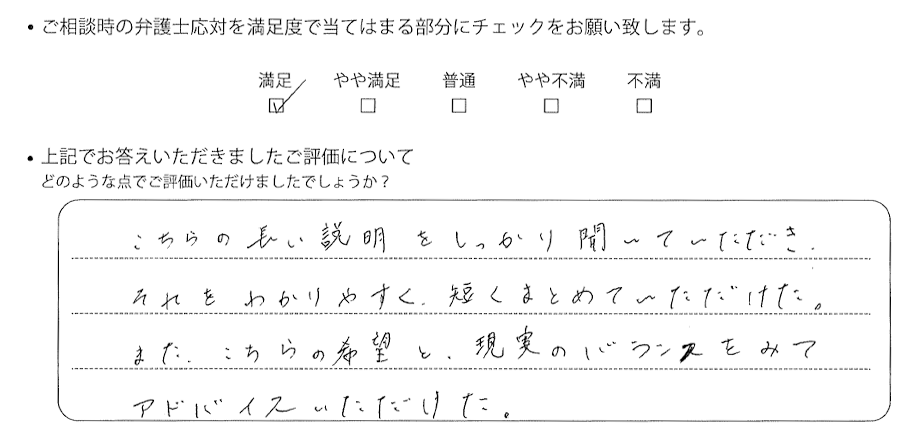 ・ご相談時の弁護士応対を満足度で当てはまる部分にチェックをお願い致します。
満足 やや満足 普通 やや不満 不満
☑ □ □ □ □
・上記でお答えいただきましたご評価について
どのような点でご評価いただけましたでしょうか？
こちらの長い説明をしっかり聞いていただき、
それをわかりやすく、短くまとめていただけた。
また、こちらの希望と、現実のバランスをみて
アドバイスいただけた。